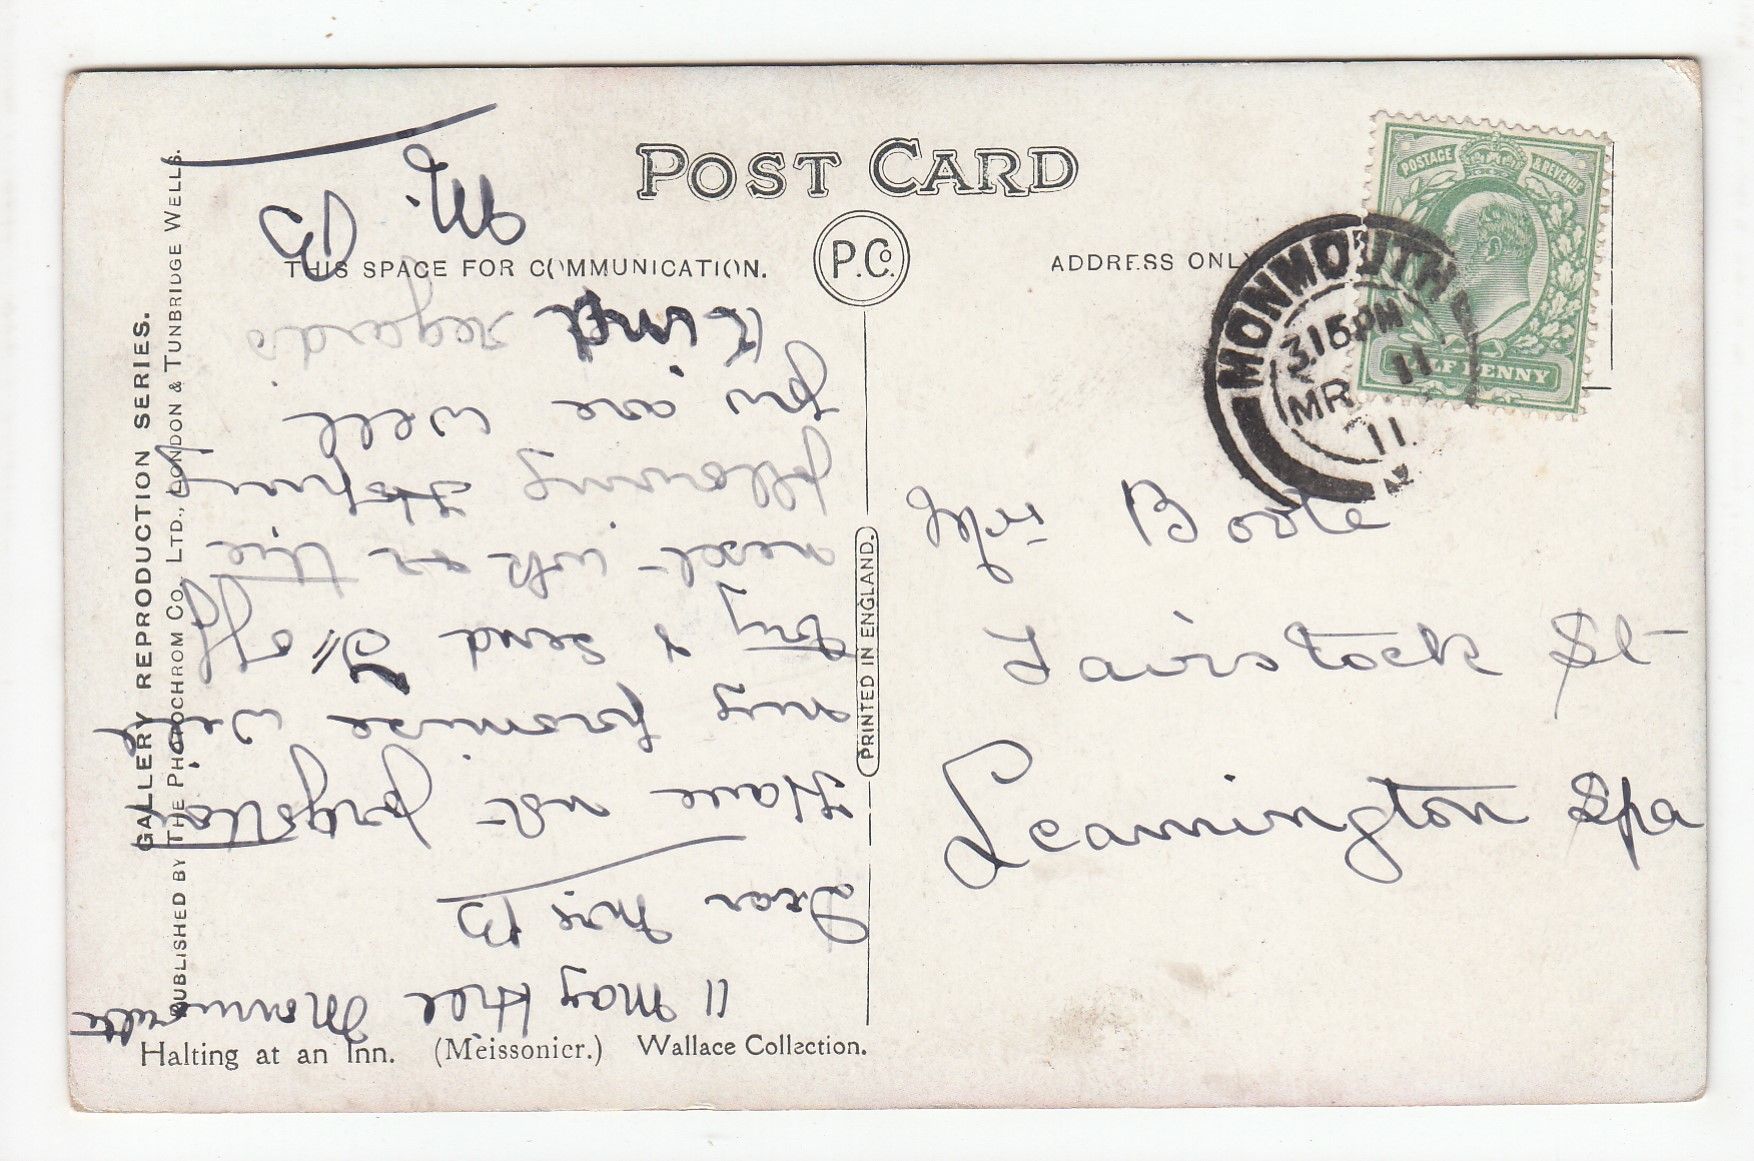 POST CARD
THIS SPACE FOR COMMUNICATION.
P.Co.
ADDRESS ONLY
POSTAGE & REVENUE
HALF PENNY
MONMOUTH
3.15PM
MR 11
11
GALLERY REPRODUCTION SERIES.
PUBLISHED BY THE PHOTOCHROM CO., LTD., LONDON & TUNBRIDGE WELLS.
PRINTED IN ENGLAND.
11 May Hill Monmouth
Dear Mrs B
Have not forgotten
my promise will
try & send it off
next wk or the
following Hoping
you are well
Kind regards
M. B
Mrs Boote
Tavistock St
Leamington Spa
Halting at an Inn. (Meissonier.) Wallace Collection.